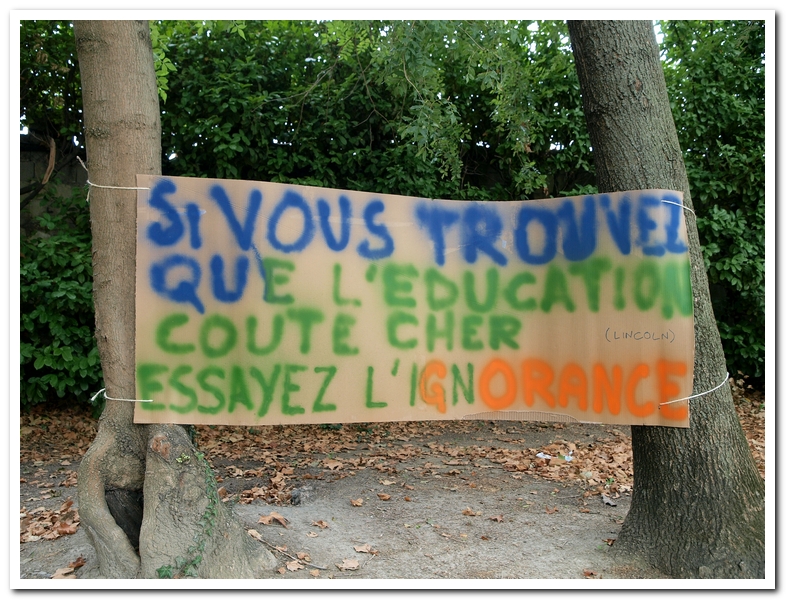 SI VOUS TROUVEZ
QUE L'EDUCATION
COUTE CHER
(LINCOLN)
ESSAYEZ L'IGNORANCE